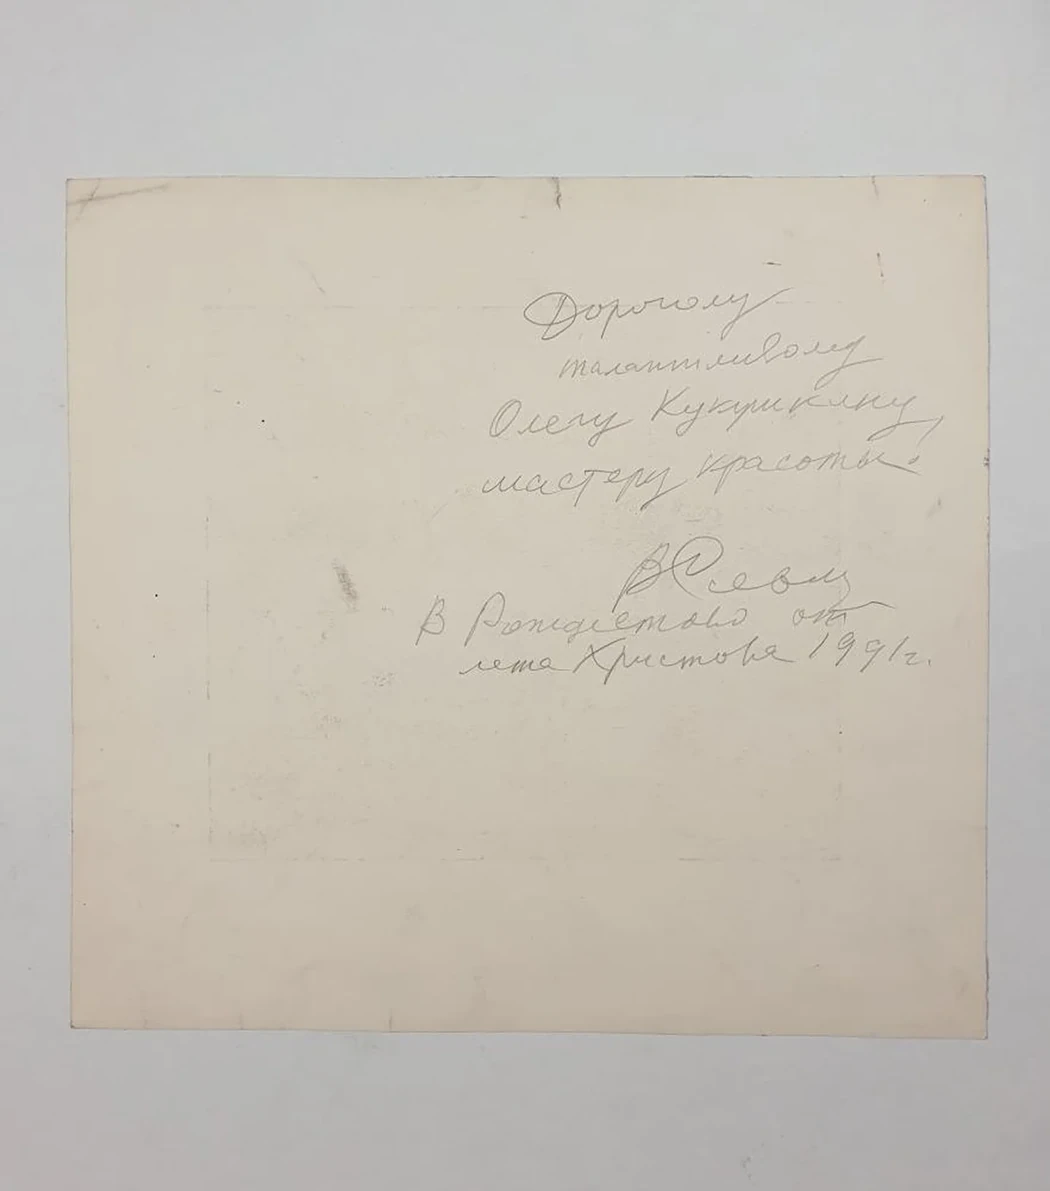 Дорогому
талантливому
Олегу Кукушкину,
мастеру красоты!
В Рождество от
лета Христова 1991г.